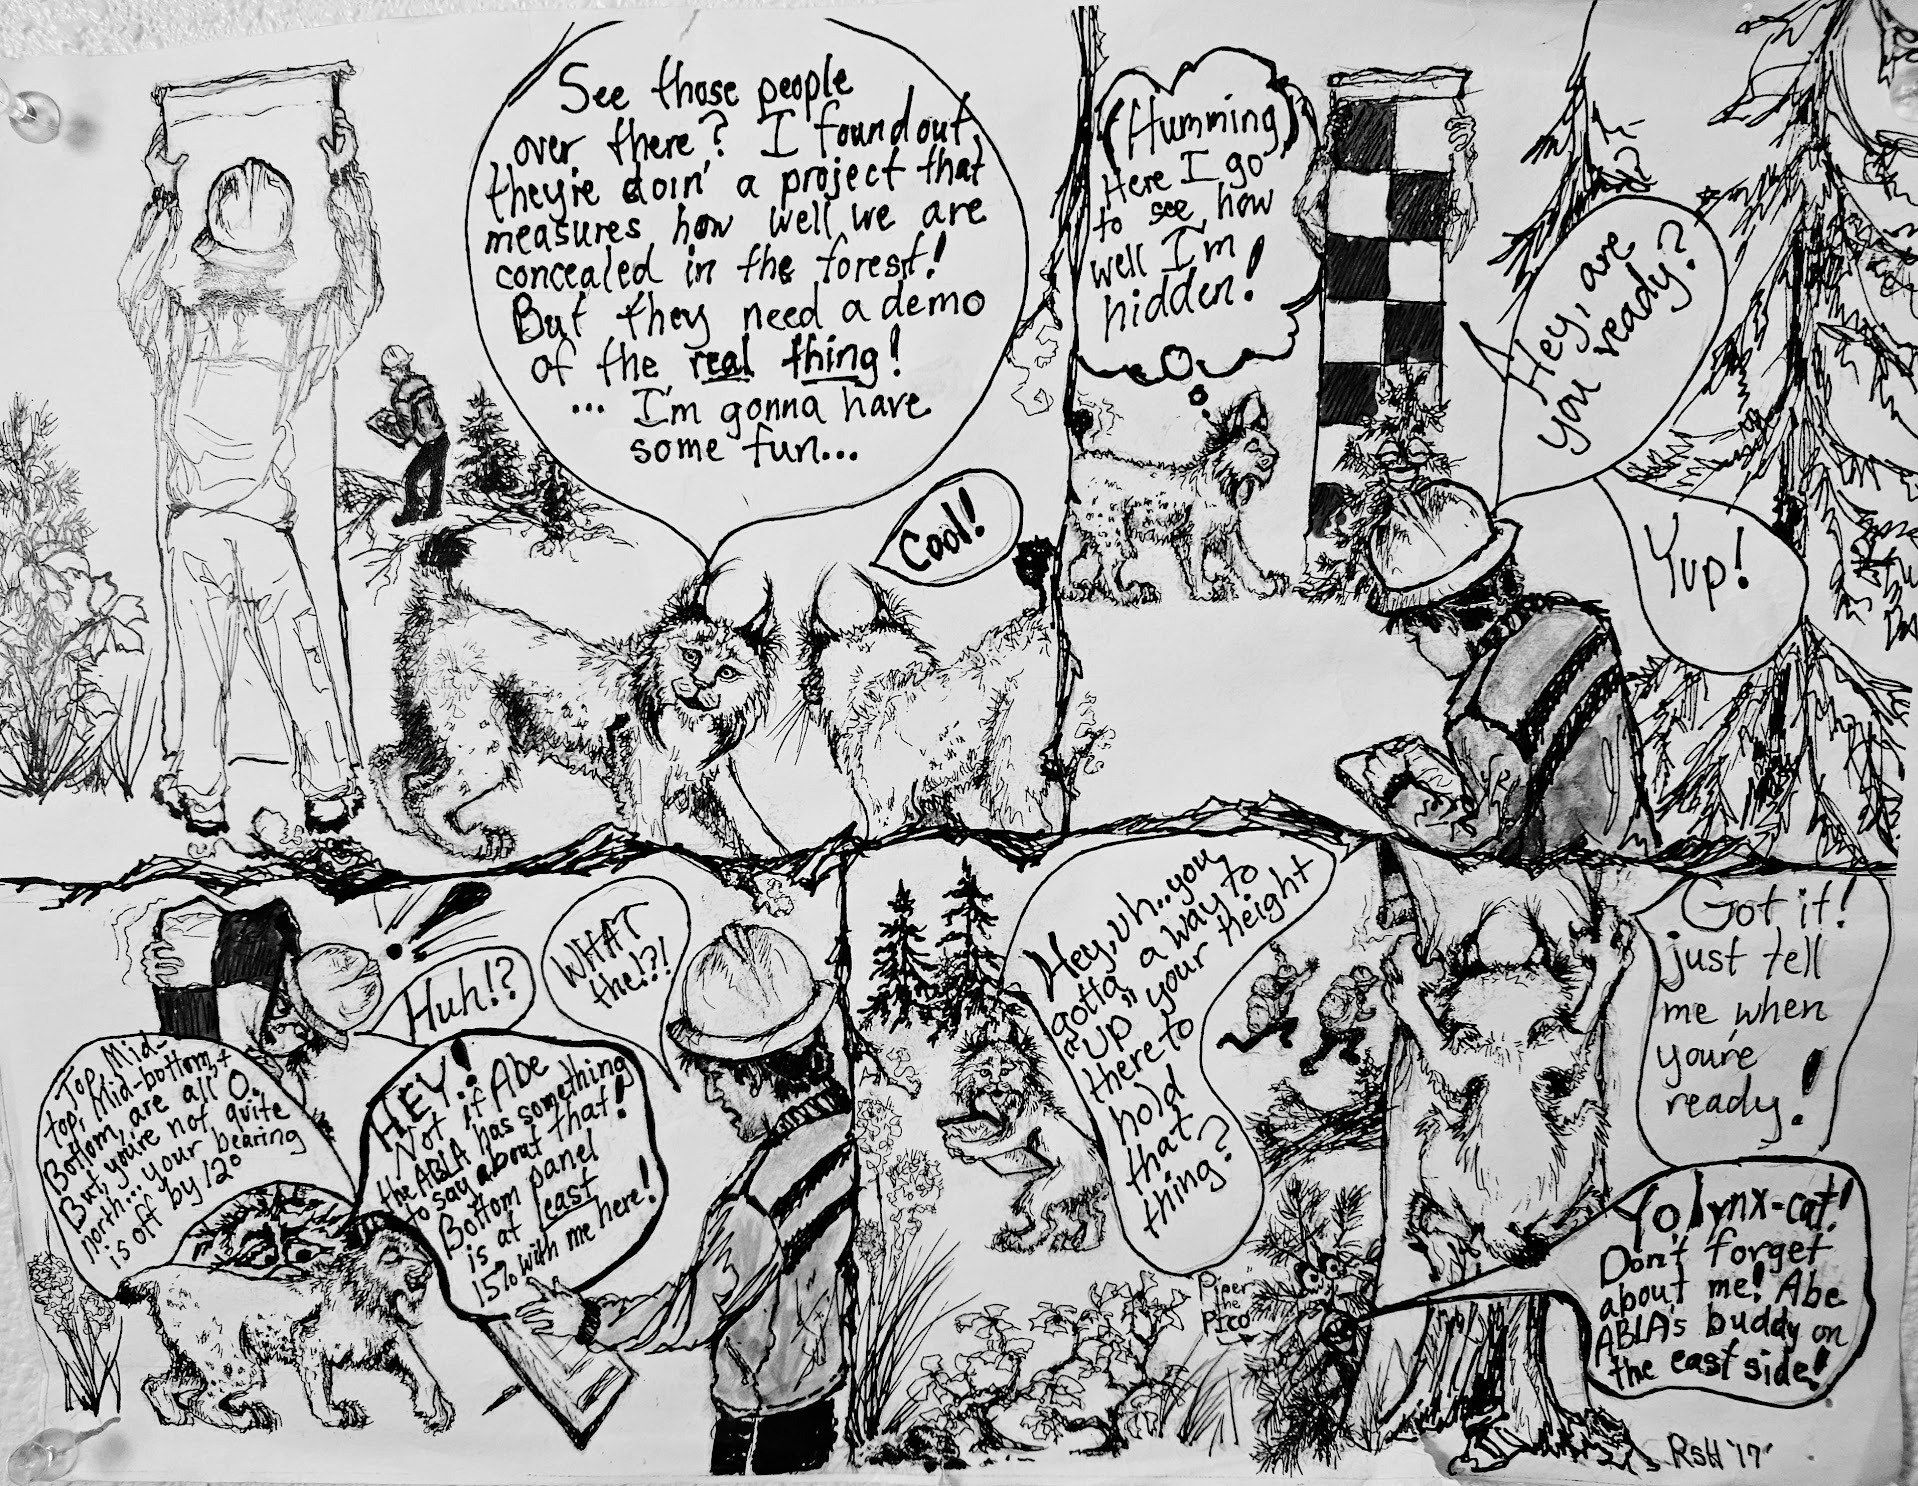 See those people
over there? I found out
they're doin' a project that
measures how well we are
concealed in the forest!
But they need a demo
of the real thing!
... I'm gonna have
some fun...
Cool!
(Humming)
Here I go
to see how
well I'm
hidden!
Hey, are
you ready?
Yup!
Top, Mid-
top, Mid-bottom, +
Bottom, are all 0.
But, you're not quite
north... your bearing
is off by 12°
Huh!?
WHAT
the!?!
HEY!
Not if Abe
the ABLA has something
to say about that!
Bottom panel
is at least
15% with me here!
Hey, uh.. you
gotta a way to
"up" your height
there to
hold
that
thing?
Got it!
just tell
me when
you're
ready!
Piper
the
Pico
Yo, lynx-cat!
Don't forget
about me! Abe
ABLA's buddy on
the east side!
RSH '17'